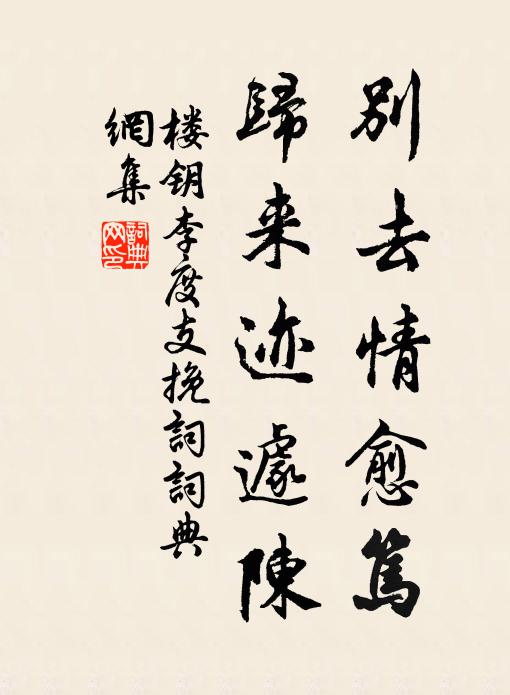 别去情愈篤
歸来迹遽陳
楼钥李度支挽詞詞典
網集
詞典网印